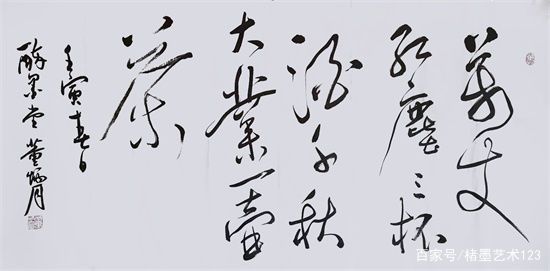 萬丈
红塵三杯
酒千秋
大業一壺
茶
壬寅春日
醉墨堂 董
百家号/楮墨艺术123